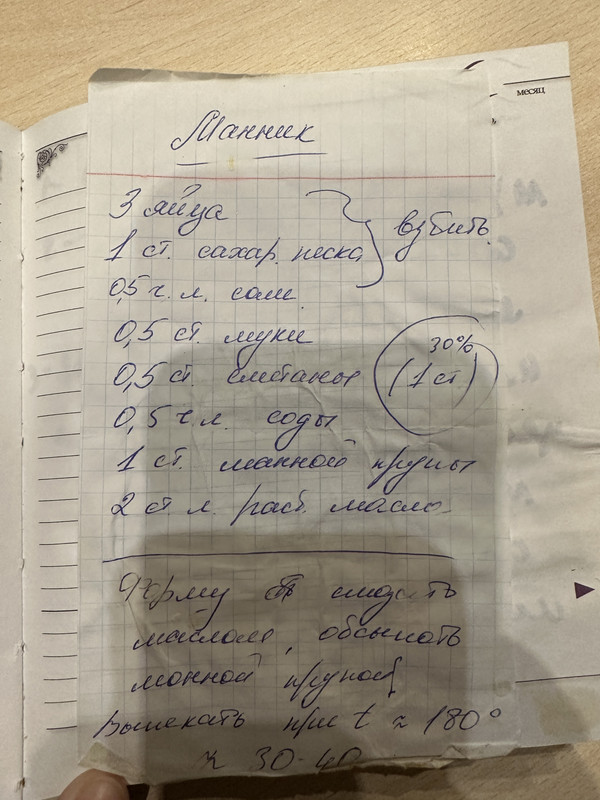 месяц
Манник
3 яйца
1 ст. сахар. песка
взбить
0,5 ч. л. соли
0,5 ст. муки
0,5 ст. сметаны
30%
(1 ст)
0,5 ч.л. соды
1 ст. манной крупы
2 ст. л. раст. масла
Форму смазать
маслом, обсыпать
манной крупой
Выпекать при t ≈ 180°
≈ 30-40